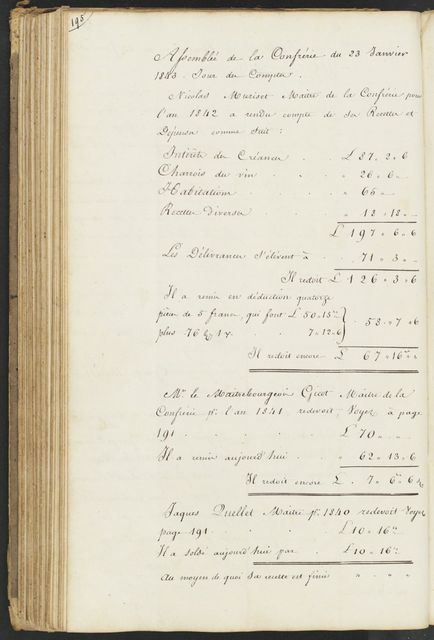 195
Assemblée de la Confrérie du 23 Janvier
1843. Jour des Comptes.
Nicolas Muriset Maitre de la Confrérie pour
l'an 1842 a rendu compte de ses Recettes et
Dépenses comme suit :
Intérêts des Créances . . £ 87 " 2 " 6
Charrois du vin . . . " 26 " 6 "
Habitations . . . " 66 "
Recettes diverses . . " 18 " 18 "
£ 197 " 6 " 6
Les Délivrances s'élèvent à . . 71 " 3 " "
Il redoit £ 126 " 3 " 6
Il a remis en déduction quatorze
pièces de 5 francs qui font £ 50 " 15 "
plus 7 " 12 " 6 } . 58 " 7 " 6
Il redoit encore £ 67 " 16 " "
Mr le Maitrebourgeois Gicot Maitre de la
Confrérie pr l'an 1841 redevoit, Voyez à page
191 . . . . . £ 70 " " "
Il a remis aujourd'hui . . " 62 " 13 " 6
Il redoit encore £ . 7 " 6 " 6
Jaques Quellet Maitre pr 1840 redevoit Voyez
page 191 . . . . £ 10 " 16 "
Il a soldé aujourd'hui par . £ 10 " 16 "
Au moyen de quoi sa recette est finie " " " "